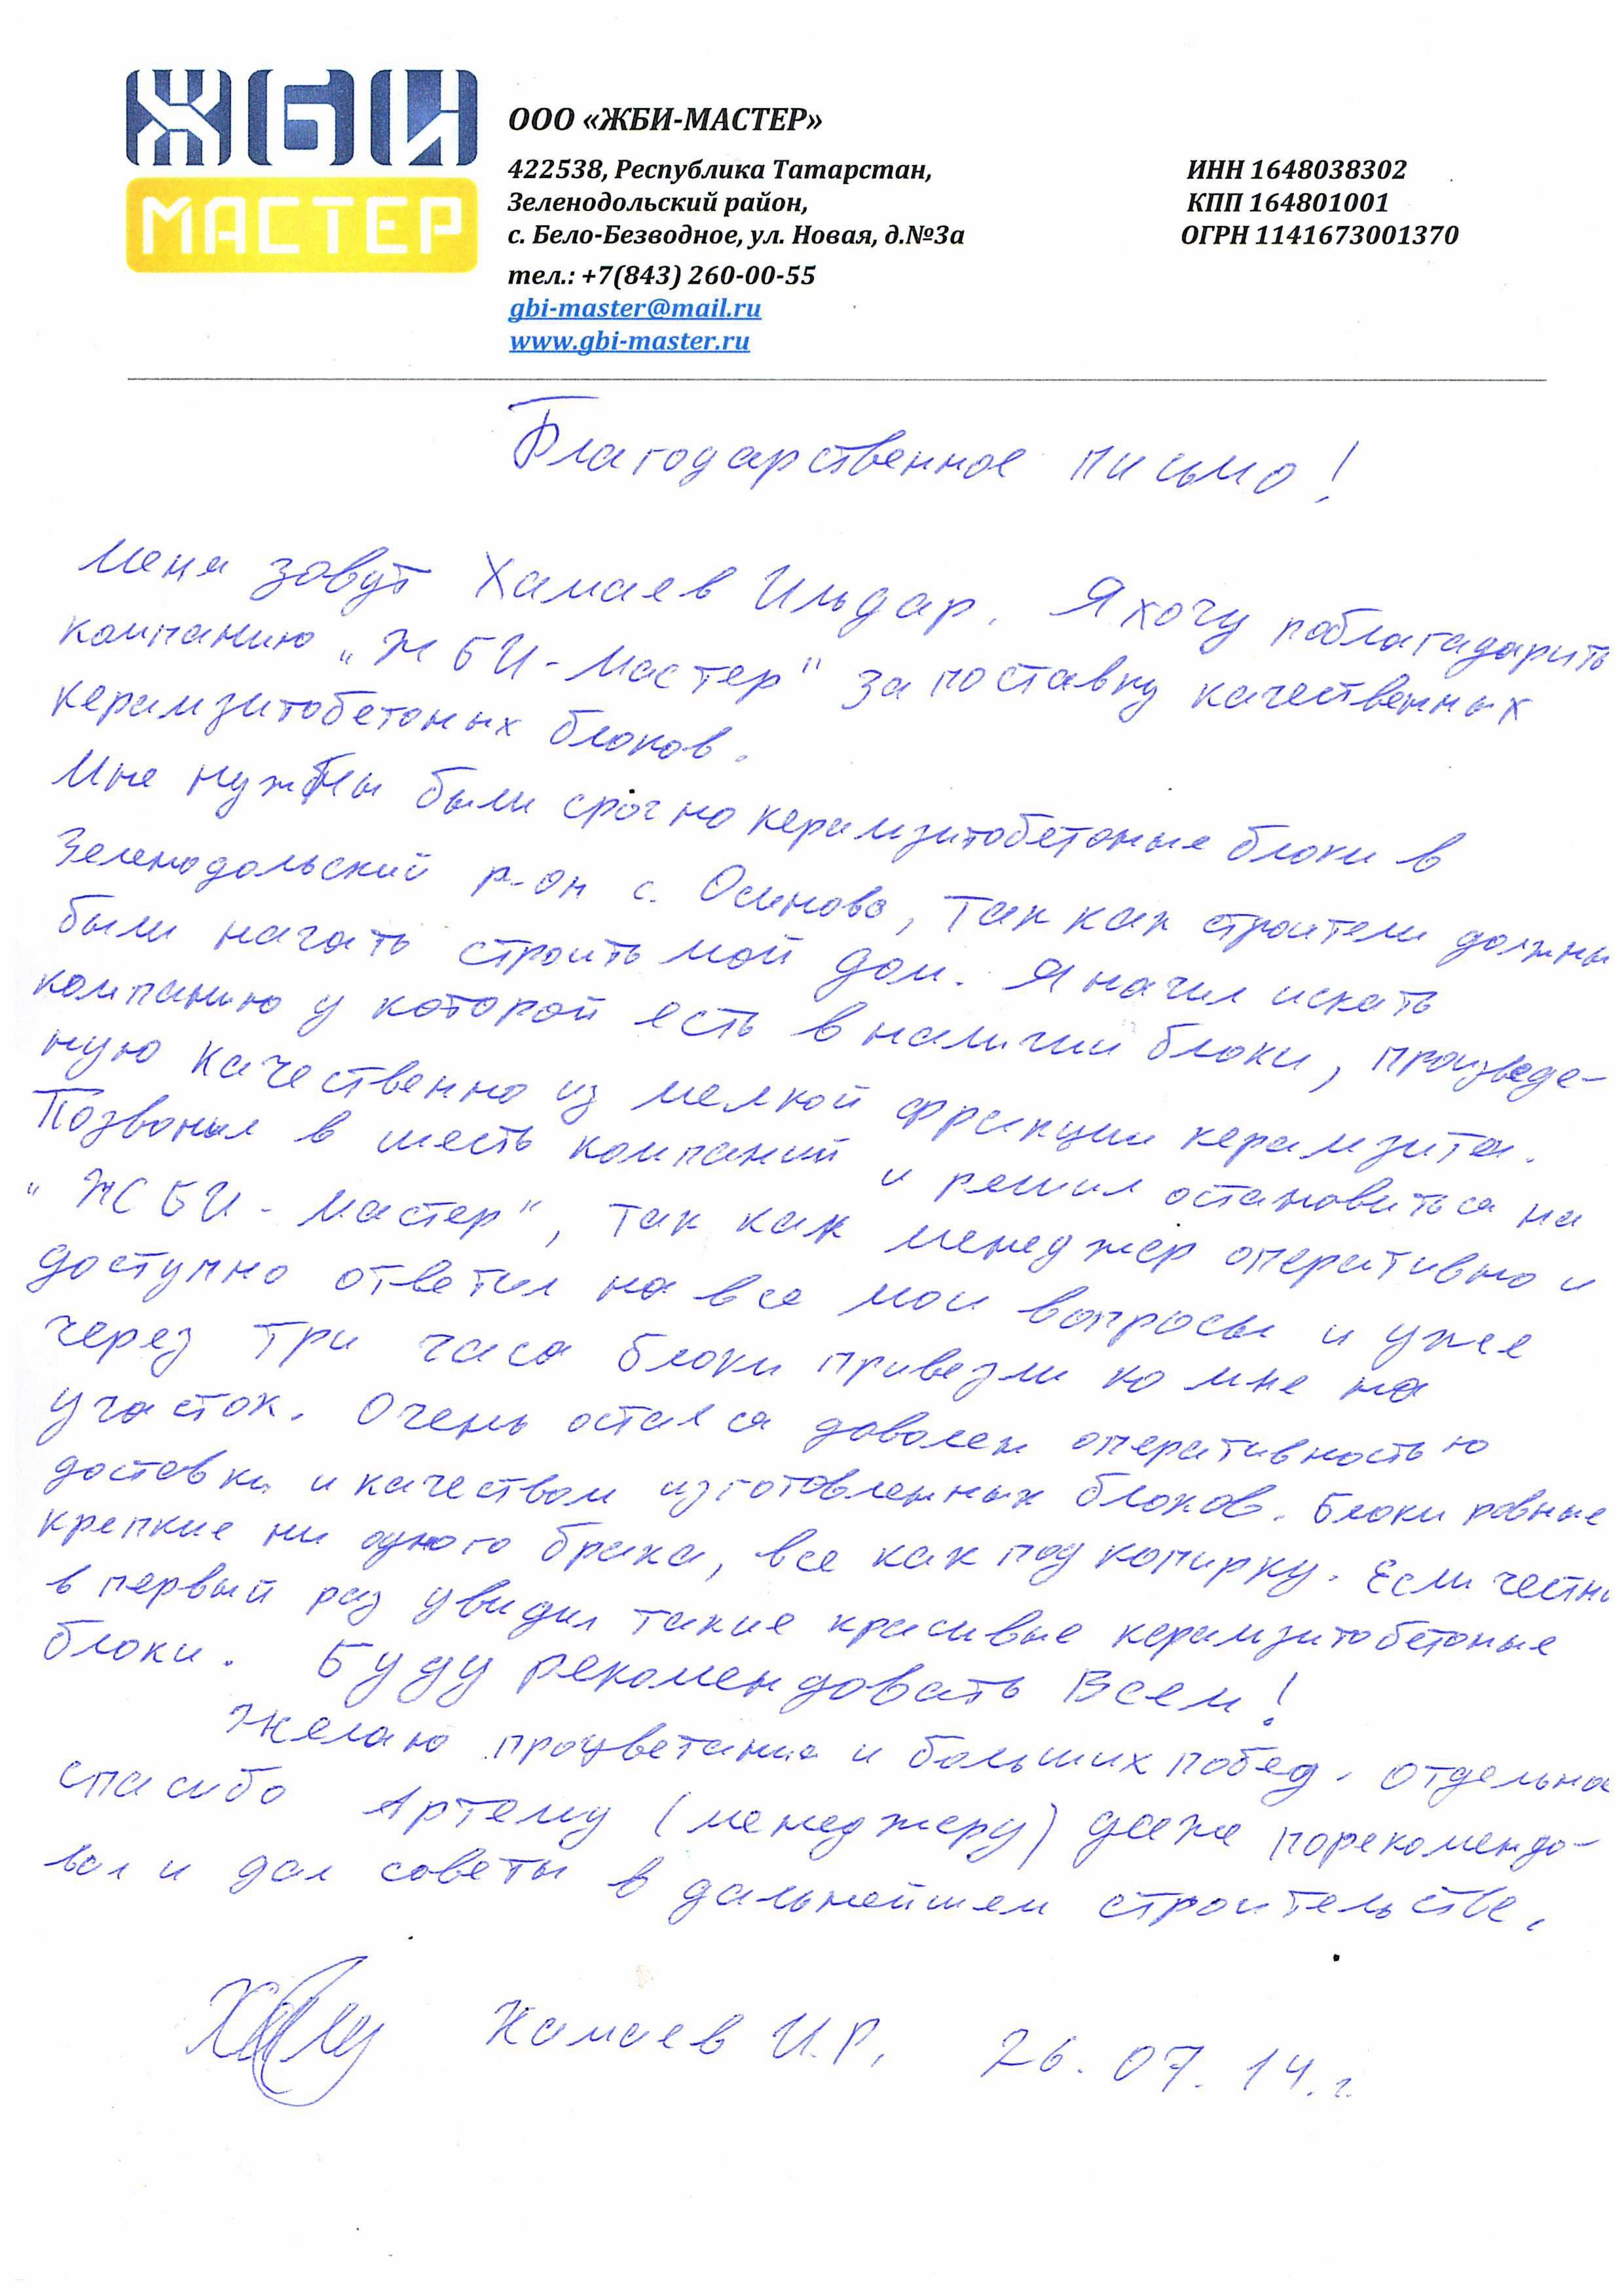 ЖБИ
МАСТЕР
ООО «ЖБИ-МАСТЕР»
422538, Республика Татарстан,
Зеленодольский район,
с. Бело-Безводное, ул. Новая, д.№3а
тел.: +7(843) 260-00-55
gbi-master@mail.ru
www.gbi-master.ru
ИНН 1648038302
КПП 164801001
ОГРН 1141673001370
Благодарственное письмо!
Меня зовут Хамаев Ильдар. Я хочу поблагадарить
компанию „ЖБИ-Мастер" за поставку качественных
керамзитобетоных блоков.
Мне нужны были срочно керамзитобетоные блоки в
Зеленодольский р-он с. Осиново, так как строители должны
были начать строить мой дом. Я начил искать
компанию у которой есть в наличии блоки, произведе-
ную качественно из мелкой фракции керамзита.
Позвонил в шесть компаний и решил остановиться на
"ЖБИ-Мастер", так как менеджер оперативно и
доступно ответил на все мои вопросы и уже
через три часа блоки привезли ко мне на
участок. Очень остался доволен оперативностью
доставки и качеством изготовленных блоков. Блоки ровные
крепкие ни одного брака, все как под копирку. Если честно
в первый раз увидил такие красивые керамзитобетоные
блоки. Буду рекомендовать Всем!
Желаю процветания и больших побед. Отдельное
спасибо Артему (менеджеру) даже порекомендо-
вал и дал советы в дальнейшем строительстве.
Хамаев И.Р. 26.07.14.г.